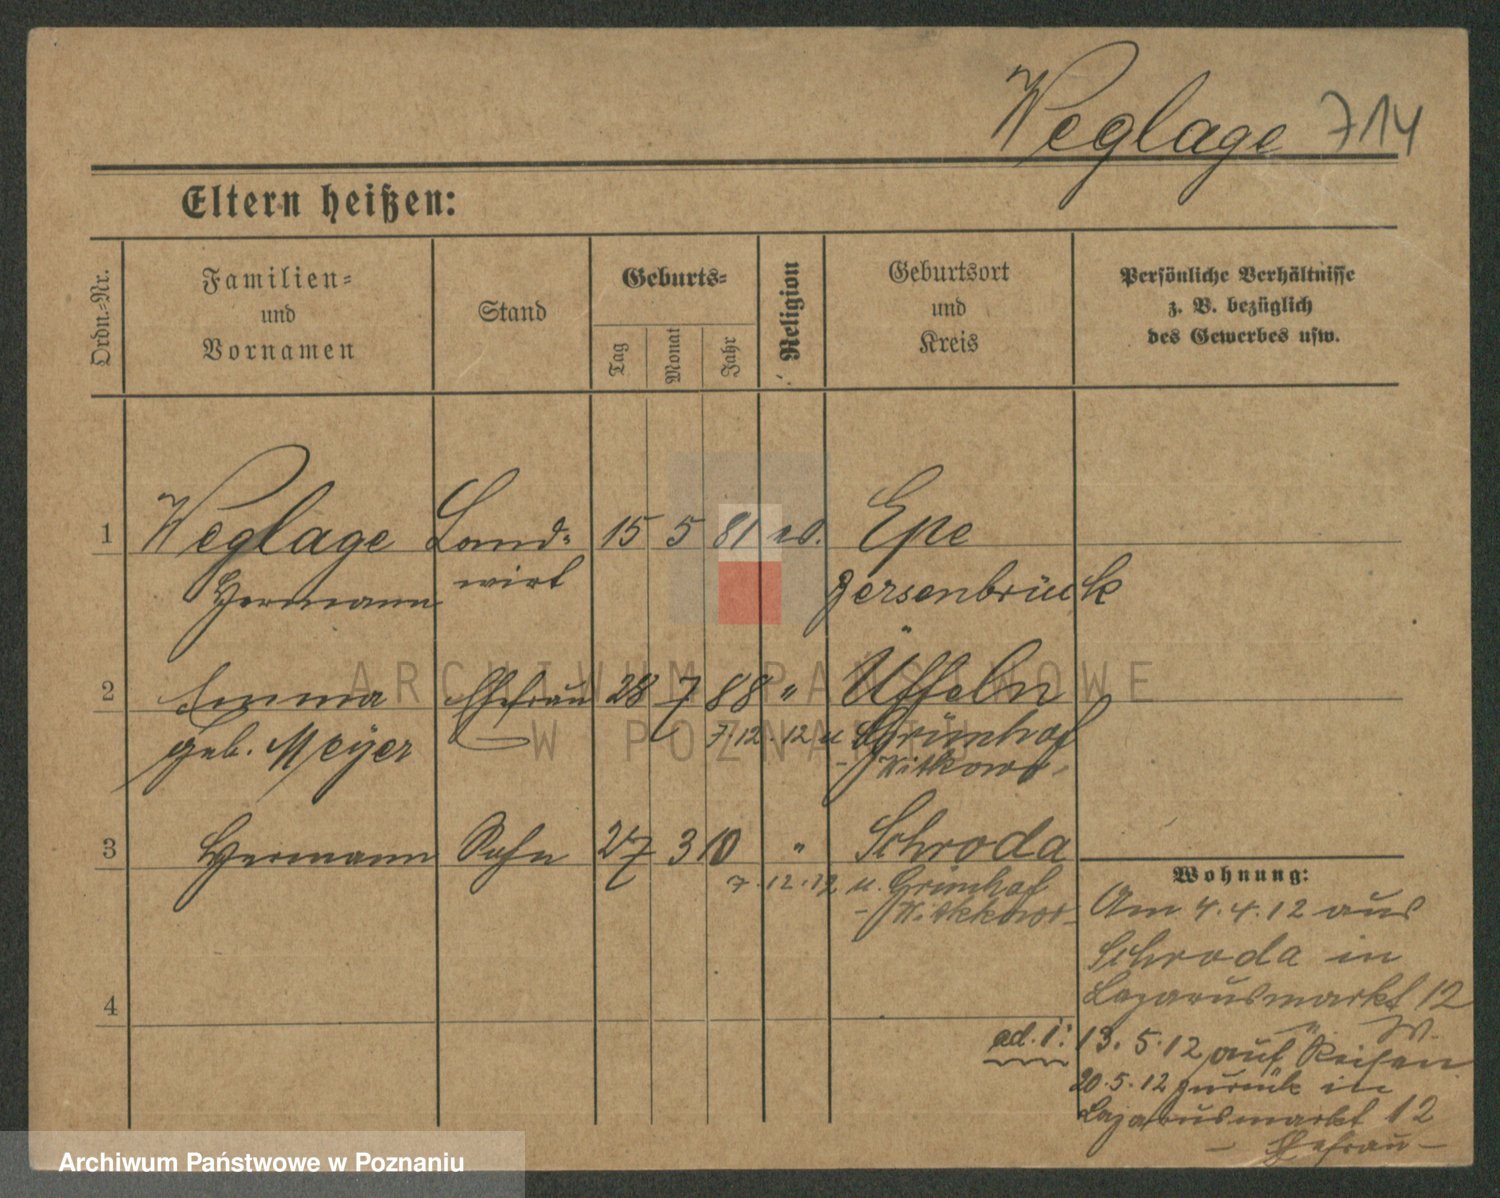 Weglage 714
Eltern heißen:
Ordn.-Nr.
Familien-
und
Vornamen
Stand
Geburts-
Tag
Monat
Jahr
Religion
Geburtsort
und
Kreis
Persönliche Verhältnisse
z. B. bezüglich
des Gewerbes usw.
1 Weglage Land- 15 5 81 ev. Epe
Hermann wirt Bersenbrück
2 Emma Ehefrau 28 7 88 " Üffeln
geb. Meyer 7.12.12 u Grünhof
- Witkowo -
3 Hermann Sohn 27 3 10 " Schroda
7.12.12 u. Grünhof
- Witkowo -
Wohnung:
Am 4.4.12 aus
Schroda in
Lazarusmarkt 12
W.
4
ad. 1: 13.5.12 auf Reisen
20.5.12 zurück in
Lazarusmarkt 12
- Ehefrau -
ARCHIWUM PAŃSTWOWE
W POZNANIU
Archiwum Państwowe w Poznaniu